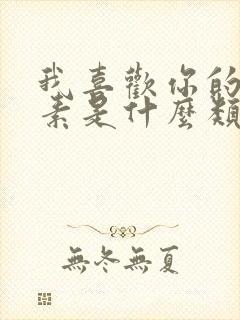 我喜歡你的
素是什麼類
無冬無夏